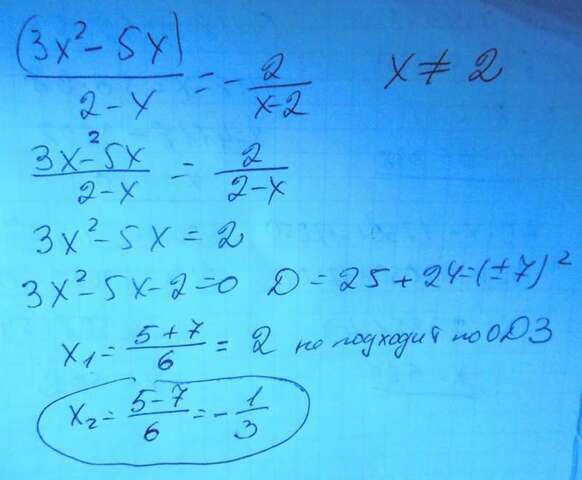 (3x² - 5x) / (2 - x) = - 2 / (x - 2)   x ≠ 2
(3x² - 5x) / (2 - x) = 2 / (2 - x)
3x² - 5x = 2
3x² - 5x - 2 = 0   D = 25 + 24 = (±7)²
x₁ = (5 + 7) / 6 = 2 не подходит по ОДЗ
x₂ = (5 - 7) / 6 = - 1/3